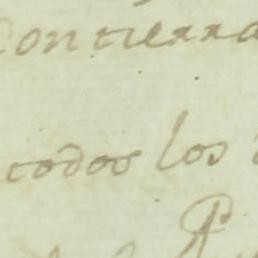 Contierra
todos los